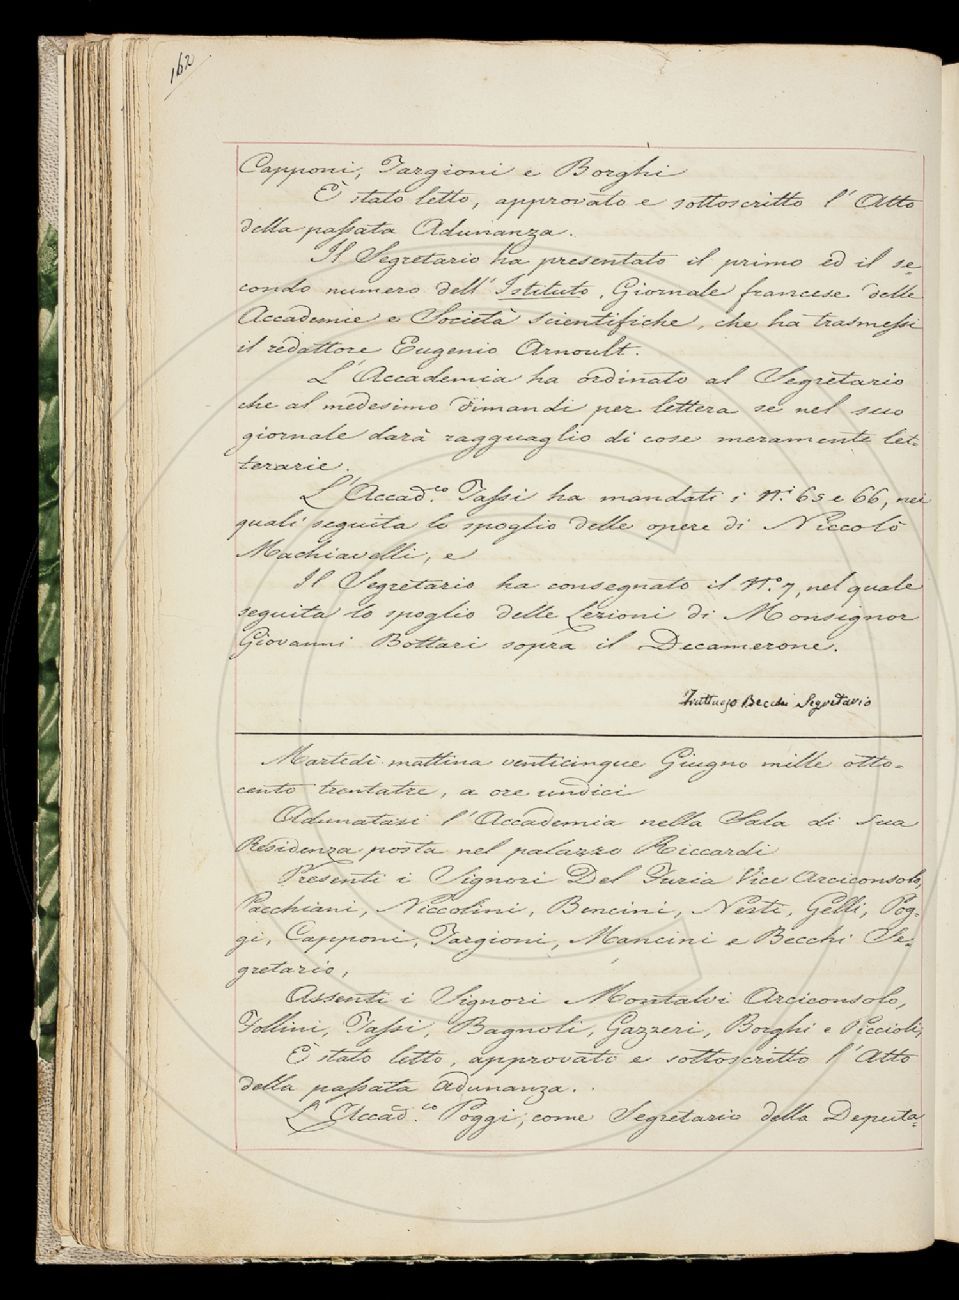 162
Capponi, Targioni e Borghi
È stato letto, approvato e sottoscritto l'Atto
della passata Adunanza.
Il Segretario ha presentato il primo ed il se=
condo numero dell'Istituto, Giornale francese delle
Accademie e Società scientifiche, che ha trasmessi
il redattore Eugenio Arnoult.
L'Accademia ha ordinato al Segretario
che al medesimo dimandi per lettera se nel suo
giornale darà ragguaglio di cose meramente let=
terarie.
L'Accad.co Tassi ha mandati i N.i 65 e 66, nei
quali seguita lo spoglio delle opere di Niccolò
Machiavelli, e
Il Segretario ha consegnato il N.o 7, nel quale
seguita lo spoglio delle Lezioni di Monsignor
Giovanni Bottari sopra il Decamerone.
Fruttuoso Becchi Segretario
Martedì mattina venticinque Giugno mille otto=
cento trentatre, a ore undici
Adunatasi l'Accademia nella Sala di sua
Residenza posta nel palazzo Riccardi
Presenti i Signori Del Furia Vice Arciconsolo,
Pacchiani, Niccolini, Bencini, Nesti, Gelli, Pog=
gi, Capponi, Targioni, Mancini e Becchi Se=
gretario,
Assenti i Signori Montalvi Arciconsolo,
Follini, Tassi, Bagnoli, Gazzeri, Borghi e Piccioli,
È stato letto, approvato e sottoscritto l'Atto
della passata Adunanza.
L'Accad.co Poggi, come Segretario della Deputa=